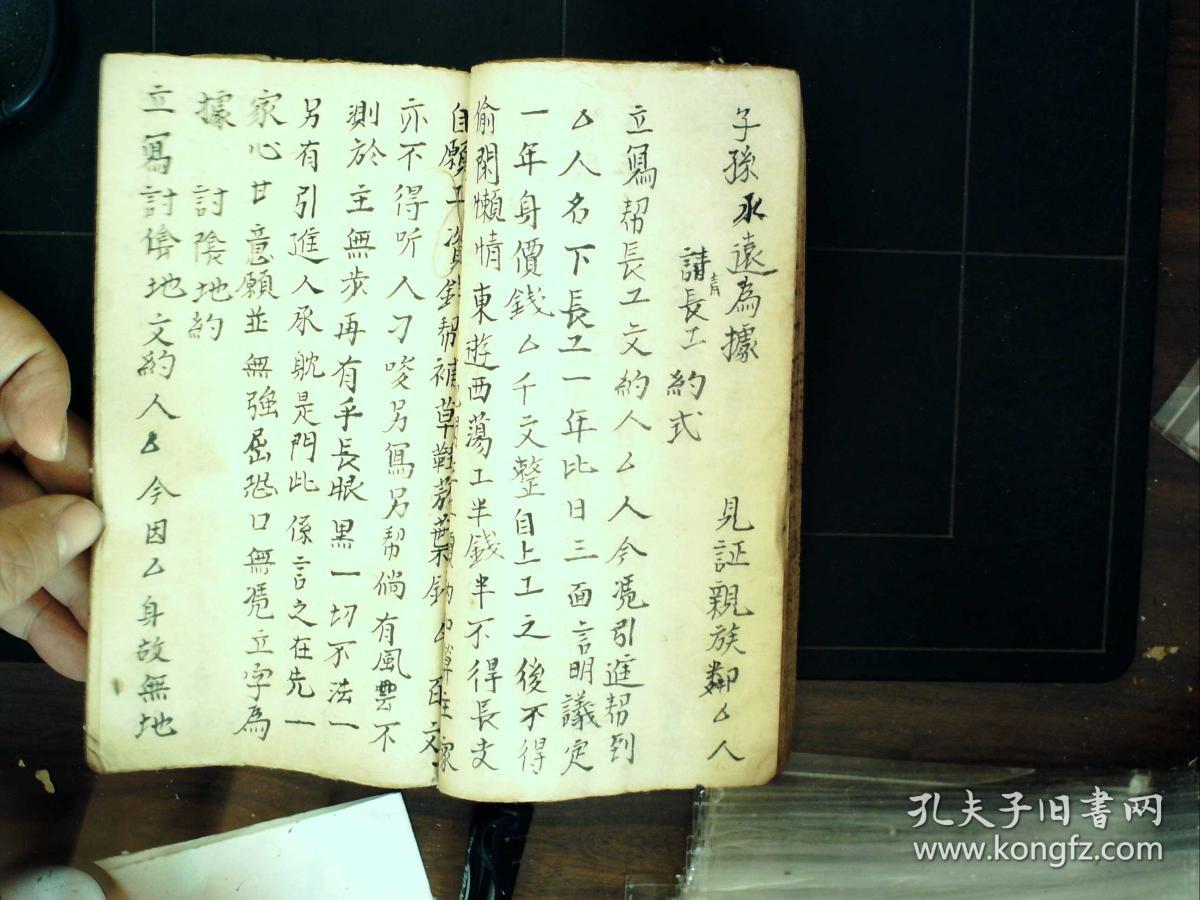 子孫永遠為據 見証親族鄰厶人
請長工約式
立寫帮長工文約人厶人今憑引進帮到
厶人名下長工一年比日三面言明議定
一年身價錢厶千文整自上工之後不得
偷閑懶情東遊西蕩工半錢半不得長支
自願工資錢帮補草鞋 文
亦不得听人刁唆另寫另帮倘有風雲不
測於主無步再有手長眼黑一切不法一
另有引進人承躭是門此係言之在先一
家心甘意願並無強屈恐口無憑立字為
據 討陰地約
立寫討陰地文約人厶今因厶身故無地
孔夫子旧书网
www.kongfz.com